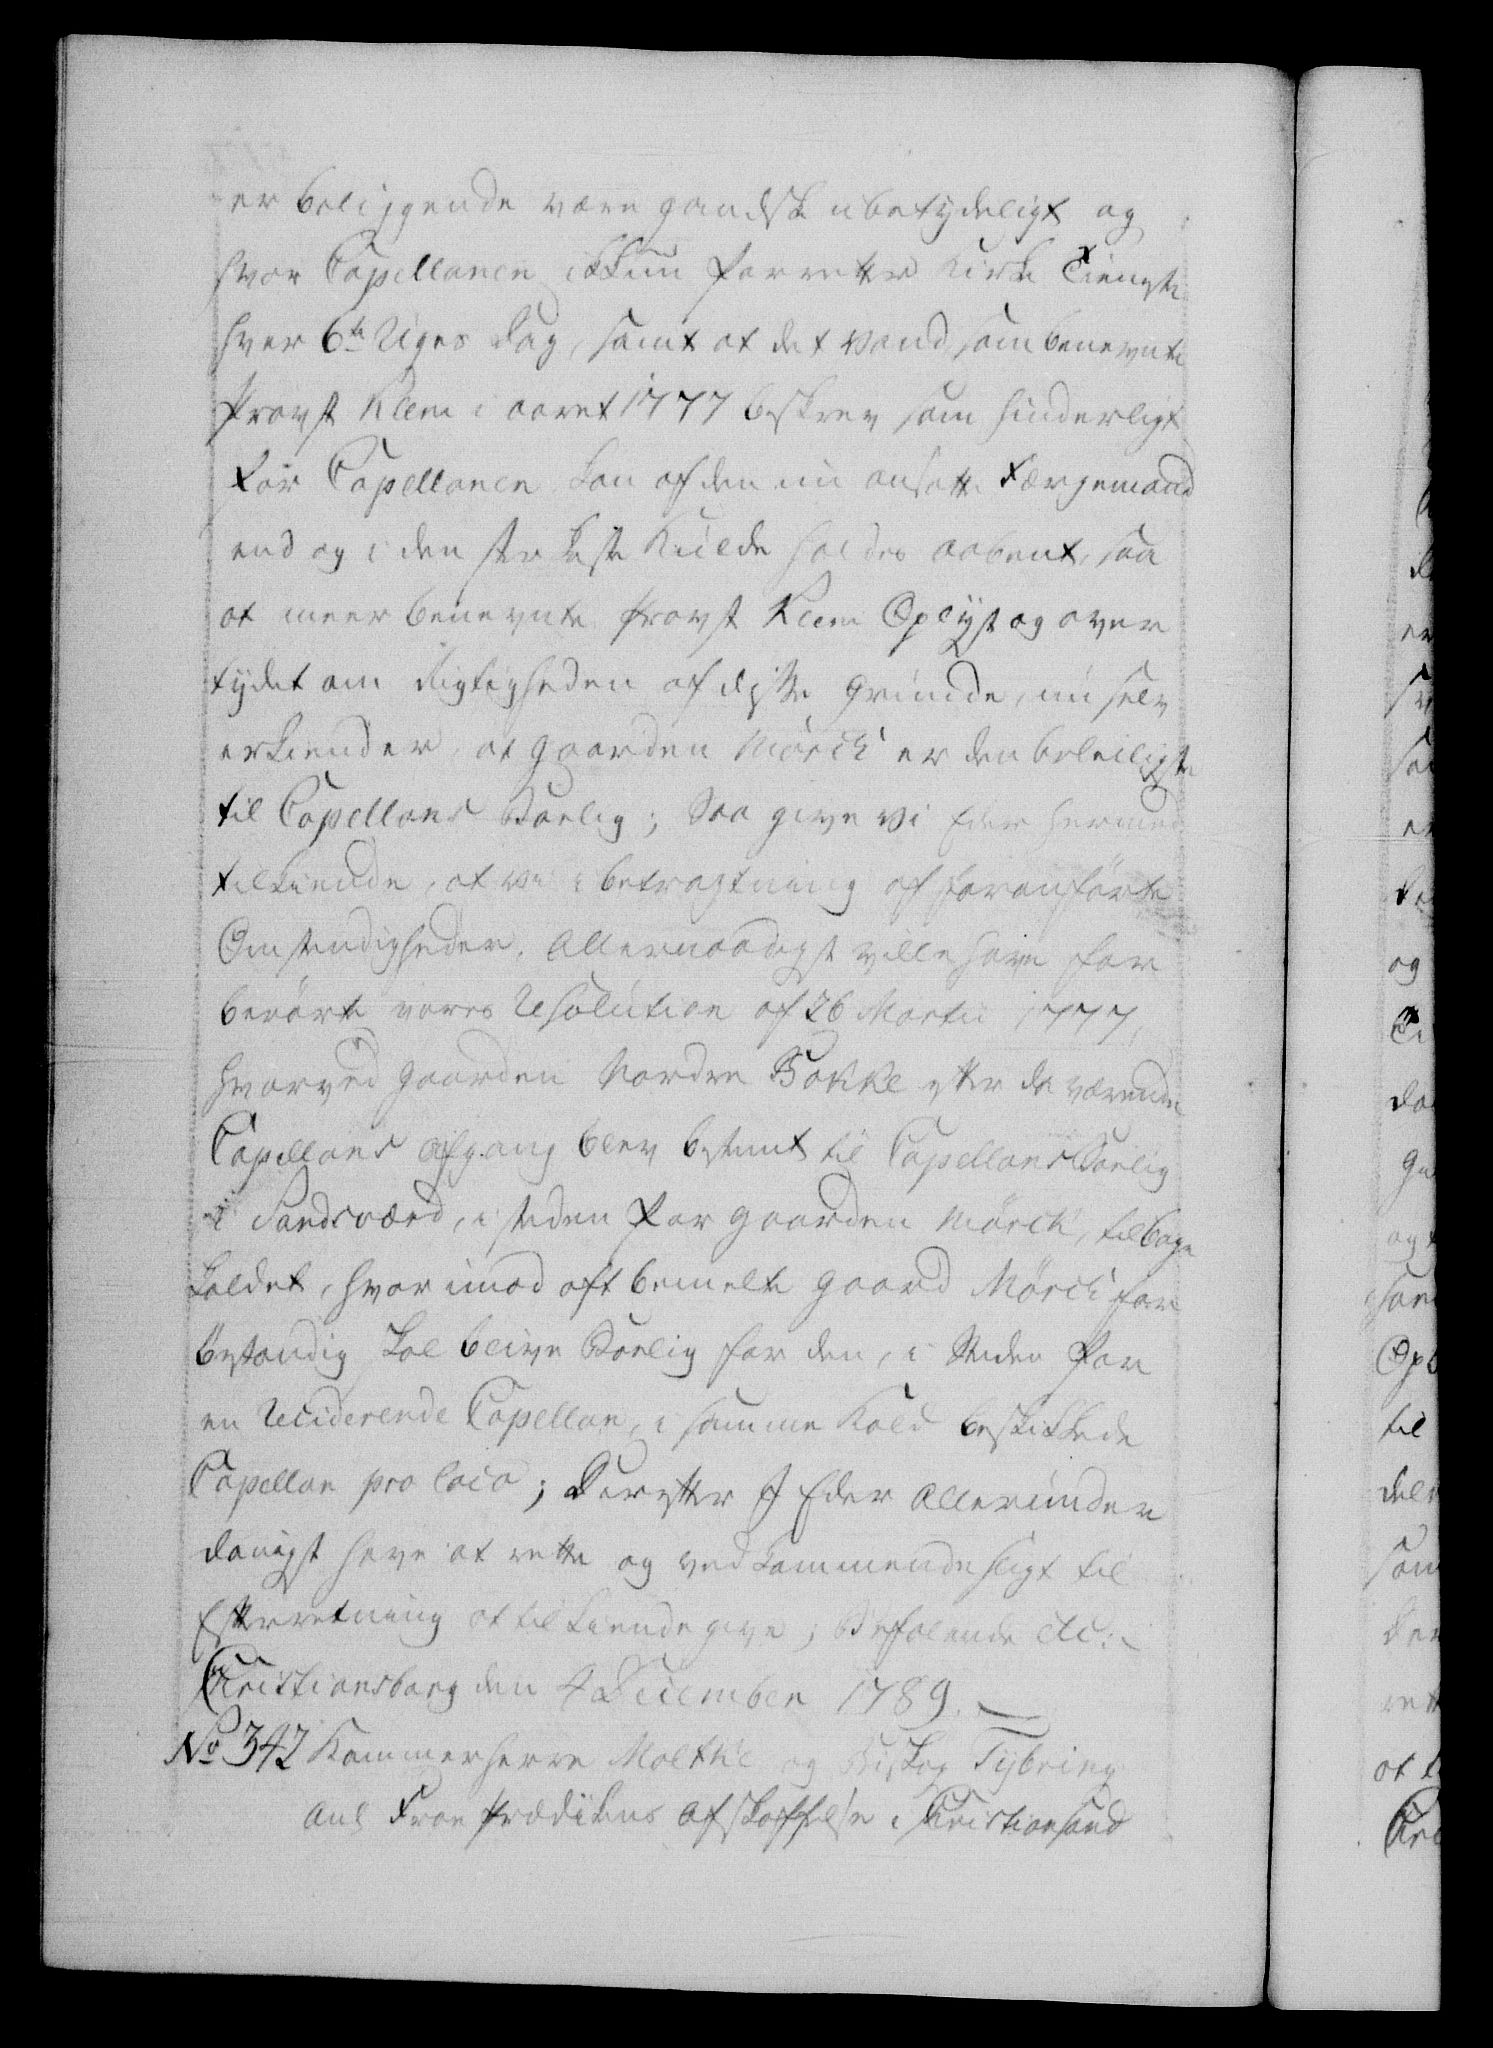 er beliggende være gandske ubetydeligt og
hvor Capellanen ikkun forretter Kirke Tieneste
hver 6te Uges Dag, samt at det vand, som benevnte
Provst Klem i aaret 1777 beskrev som hinderligt
for Capellanen kan af den nu ansatte Færgemand
end og i den sterkeste Kulde holdes aabent, saa
at meerbenevnte Provst Klem Oplyst og over
tydet om Rigtigheden af disse Grunde, nu selv
erkiender, at gaarden Mørch er den beleiligste
til Capellans Boelig; Saa give vi Eder hermed
tilkiende, at vi i betragtning af foranførte
Omstendigheder, Allernaadigst ville have for
berørte vores Resolution af 26 Martii 1777,
hvorved gaarden Nordre Bakke efter da værende
Capellans Afgang blev bestemt til Capellans Boelig
i Sandsværd, i steden for gaarden Mørch, tilbage
kaldet, hvorimod oftbemelte gaard Mørch for
bestandig skal blive Boelig for den, i Steden for
en Reciderende Capellan, i samme Kald beskikkede
Capellan pro loco; Derefter I Eder Allerunder
danigst have at rette og vedkommende sligt til
Efterretning at tilkiendegive; Befalende etc:
Christiansborg den 4 December 1789.
No 342 Kammerherre Moltke og Biskop Tybring
anl Froe Prædikens Afskaffelse i Christiansand